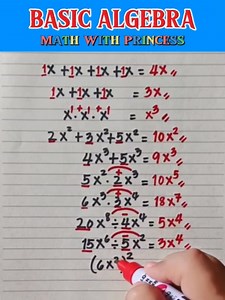 BASIC ALGEBRA
MATH WITH PRINCESS
1x + 1x + 1x + 1x = 4x
1x + 1x + 1x = 3x
x¹ · x¹ · x¹ = x³
2x² + 3x² + 5x² = 10x²
4x³ + 5x³ = 9x³
5x² · 2x³ = 10x⁵
6x³ · 3x⁴ = 18x⁷
20x⁸ ÷ 4x⁴ = 5x⁴
15x⁶ ÷ 5x² = 3x⁴
(6x³)²